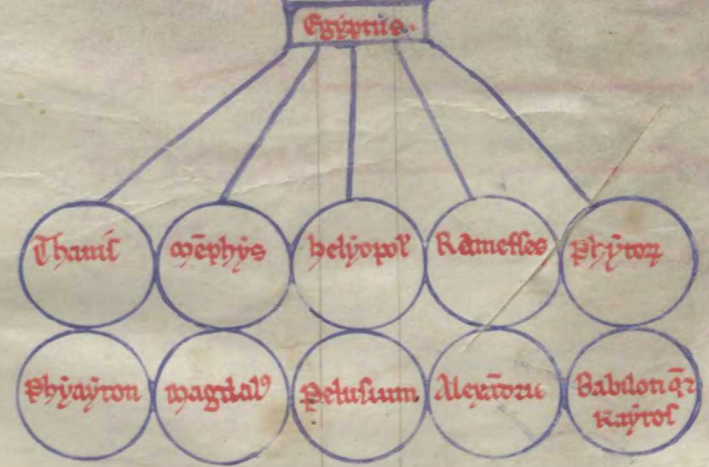 Egyptus.
Thanis mēphys helyopol Ramesses Phytoꝝ
Phyayton magdalꝰ Pelusium Babilon
kayros